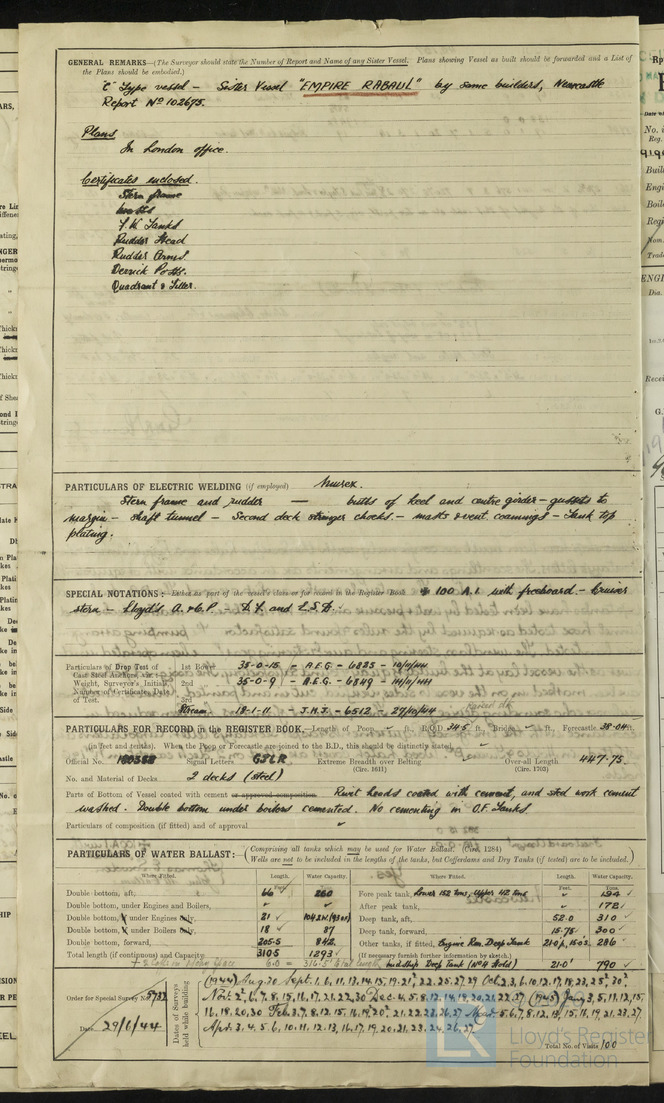 GENERAL REMARKS—(The Surveyor should state the Number of Report and Name of any Sister Vessel. Plans showing Vessel as built should be forwarded and a List of
the Plans should be embodied.)
"C" Type vessel – Sister Vessel "EMPIRE RABAUL" by same builders, Newcastle
Report No 102675.
Plans
In London office.
Certificates enclosed.
Stern frame
F.W. Tanks
Rudder Head
Rudder Arms
Derrick Posts.
Quadrant & Tiller.
PARTICULARS OF ELECTRIC WELDING (if employed) Murex.
Stern frame and rudder — butts of keel and centre girder – gussets to
margin – shaft tunnel – Second deck stringer chocks – masts & vent. coamings – Tank top
plating.
SPECIAL NOTATIONS:— Either as part of the vessel's class or for record in the Register Book. 100 A.1. with freeboard – Cruiser
stern – Lloyd's A. & C.P – D.F. and E.S.D.
Particulars of Drop Test of
Cast Steel Anchors, viz.:—
Weight, Surveyor's Initials,
Number of Certificates, Date
of Test.
1st Bower 35-0-15 – A.E.G – 6825 – 10/11/44
2nd 35-0-9 – A.E.G – 6849 – 14/11/44
3rd
Stream 18-1-11 – J.H.J. – 6512 – 27/10/44
PARTICULARS FOR RECORD in the REGISTER BOOK.— Length of Poop ft., R.Q.D. 34·5 ft., Bridge ft., Forecastle 38·04 ft.
(in feet and tenths). When the Poop or Forecastle are joined to the B.D., this should be distinctly stated
Official No. 180388 Signal Letters GJLR Extreme Breadth over Belting (Circ. 1611) Over-all Length (Circ. 1703) 447·75
No. and Material of Decks 2 decks (steel)
Parts of Bottom of Vessel coated with cement or approved composition. Rivet heads coated with cement, and steel work cement
washed. Double bottom under boilers cemented. No cementing in O.F. Tanks
Particulars of composition (if fitted) and of approval
PARTICULARS OF WATER BALLAST:— (Comprising all tanks which may be used for Water Ballast. (Circ. 1284)
Wells are not to be included in the lengths of the tanks, but Cofferdams and Dry Tanks (if tested) are to be included.)
Where Fitted. Length. Water Capacity. Where Fitted. Length. Water Capacity.
Feet. Tons.
Double bottom, aft, 66 260 Fore peak tank, Lower 152 tons, Upper 42 tons 194
Double bottom, under Engines and Boilers, After peak tank, 172
Double bottom, under Engines only, 21 Deep tank, aft, 52·0 310
Double bottom, under Boilers only, 18 87 Deep tank, forward, 15·75 300
Double bottom, forward, 205·5 842 Other tanks, if fitted, Engine Rm. Deep Tank 286
Total length (if continuous) and Capacity 310·5 1293 (If necessary furnish further information by sketch.)
6·0 = 316·5 Total length Midship Deep Tank (No 4 Hold) 21·0' 790
Order for Special Survey No. 5732
Date 29/6/44
Dates of Surveys held while building
(1944) Aug 30 Sept. 1, 6, 11, 13, 14, 15, 19, 21, 22, 25, 27, 29 Oct. 2, 3, 6, 10, 12, 17, 18, 23, 25, 30,
Nov. 2, 6, 7, 8, 15, 16, 17, 21, 22, 30 Dec. 4, 5, 8, 12, 14, 19, 20, 21, 22, 27 (1945) Jan. 3, 5, 11, 12, 15,
16, 18, 20, 30 Feb. 2, 7, 8, 12, 15, 16, 19, 20, 21, 22, 23, 26, 27 Mar. 5, 6, 7, 8, 12, 13, 15, 16, 19, 21, 23, 27
Apr. 3, 4, 5, 6, 10, 11, 12, 13, 16, 17, 19, 20, 21, 23, 24, 26, 27
Total No. of Visits 100
LR
Lloyd's Register
Foundation